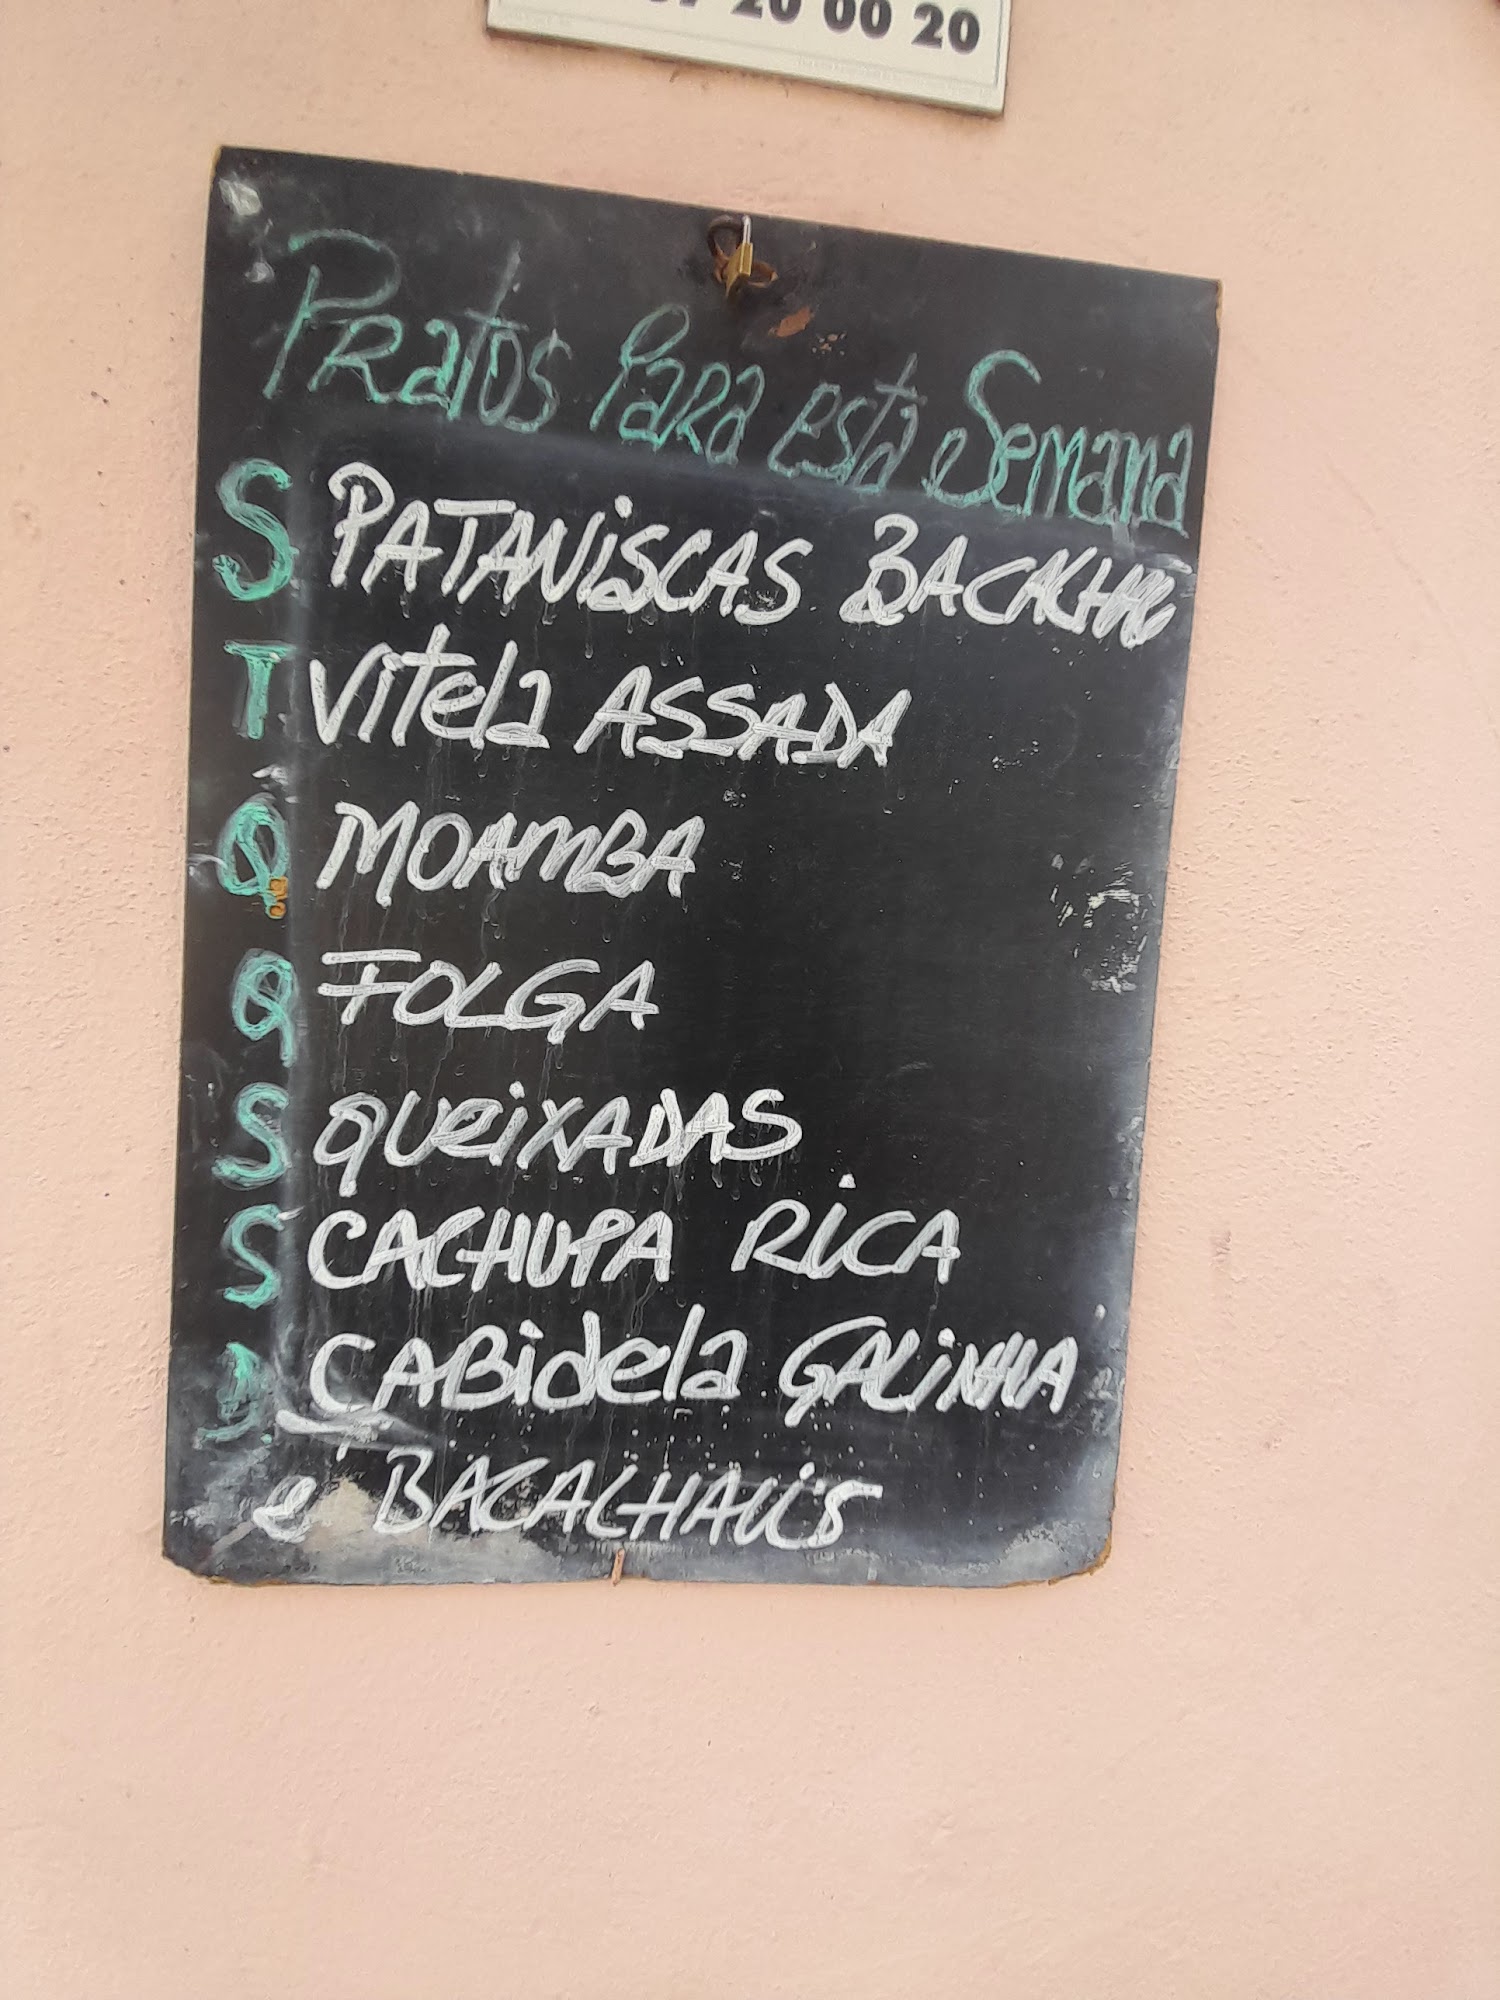 20 00 20
Pratos Para esta Semana
S PATANiSCAS BACALHAU
T Vitela ASSADA
Q MOAMBA
Q FOLGA
S QUEiXADAS
S CACHUPA RiCA
D CABidela GALiNHA
e BACALHAU'S